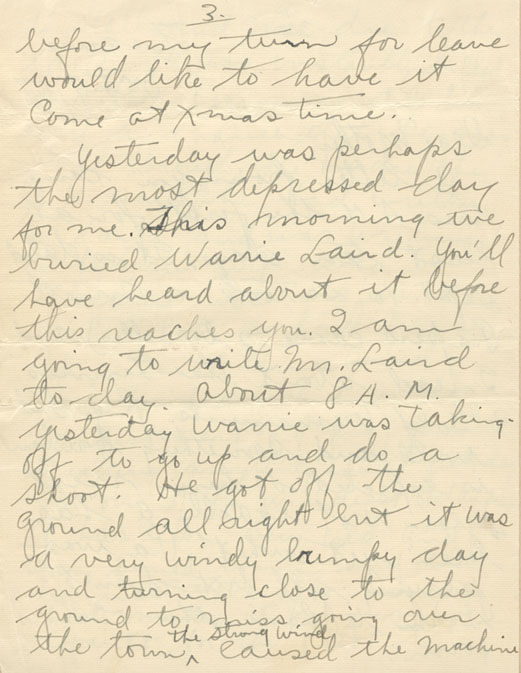 3.
before my turn for leave
would like to have it
Come at Xmas time.
Yesterday was perhaps
the most depressed day
for me. This morning we
buried Warrie Laird. You'll
have heard about it before
this reaches you. I am
going to write Mr. Laird
to-day. About 8 A.M.
yesterday Warrie was taking-
off to go up and do a
shoot. He got off the
ground all right but it was
a very windy bumpy day
and turning close to the
ground to miss going over
the town ^ the strong wind caused the machine